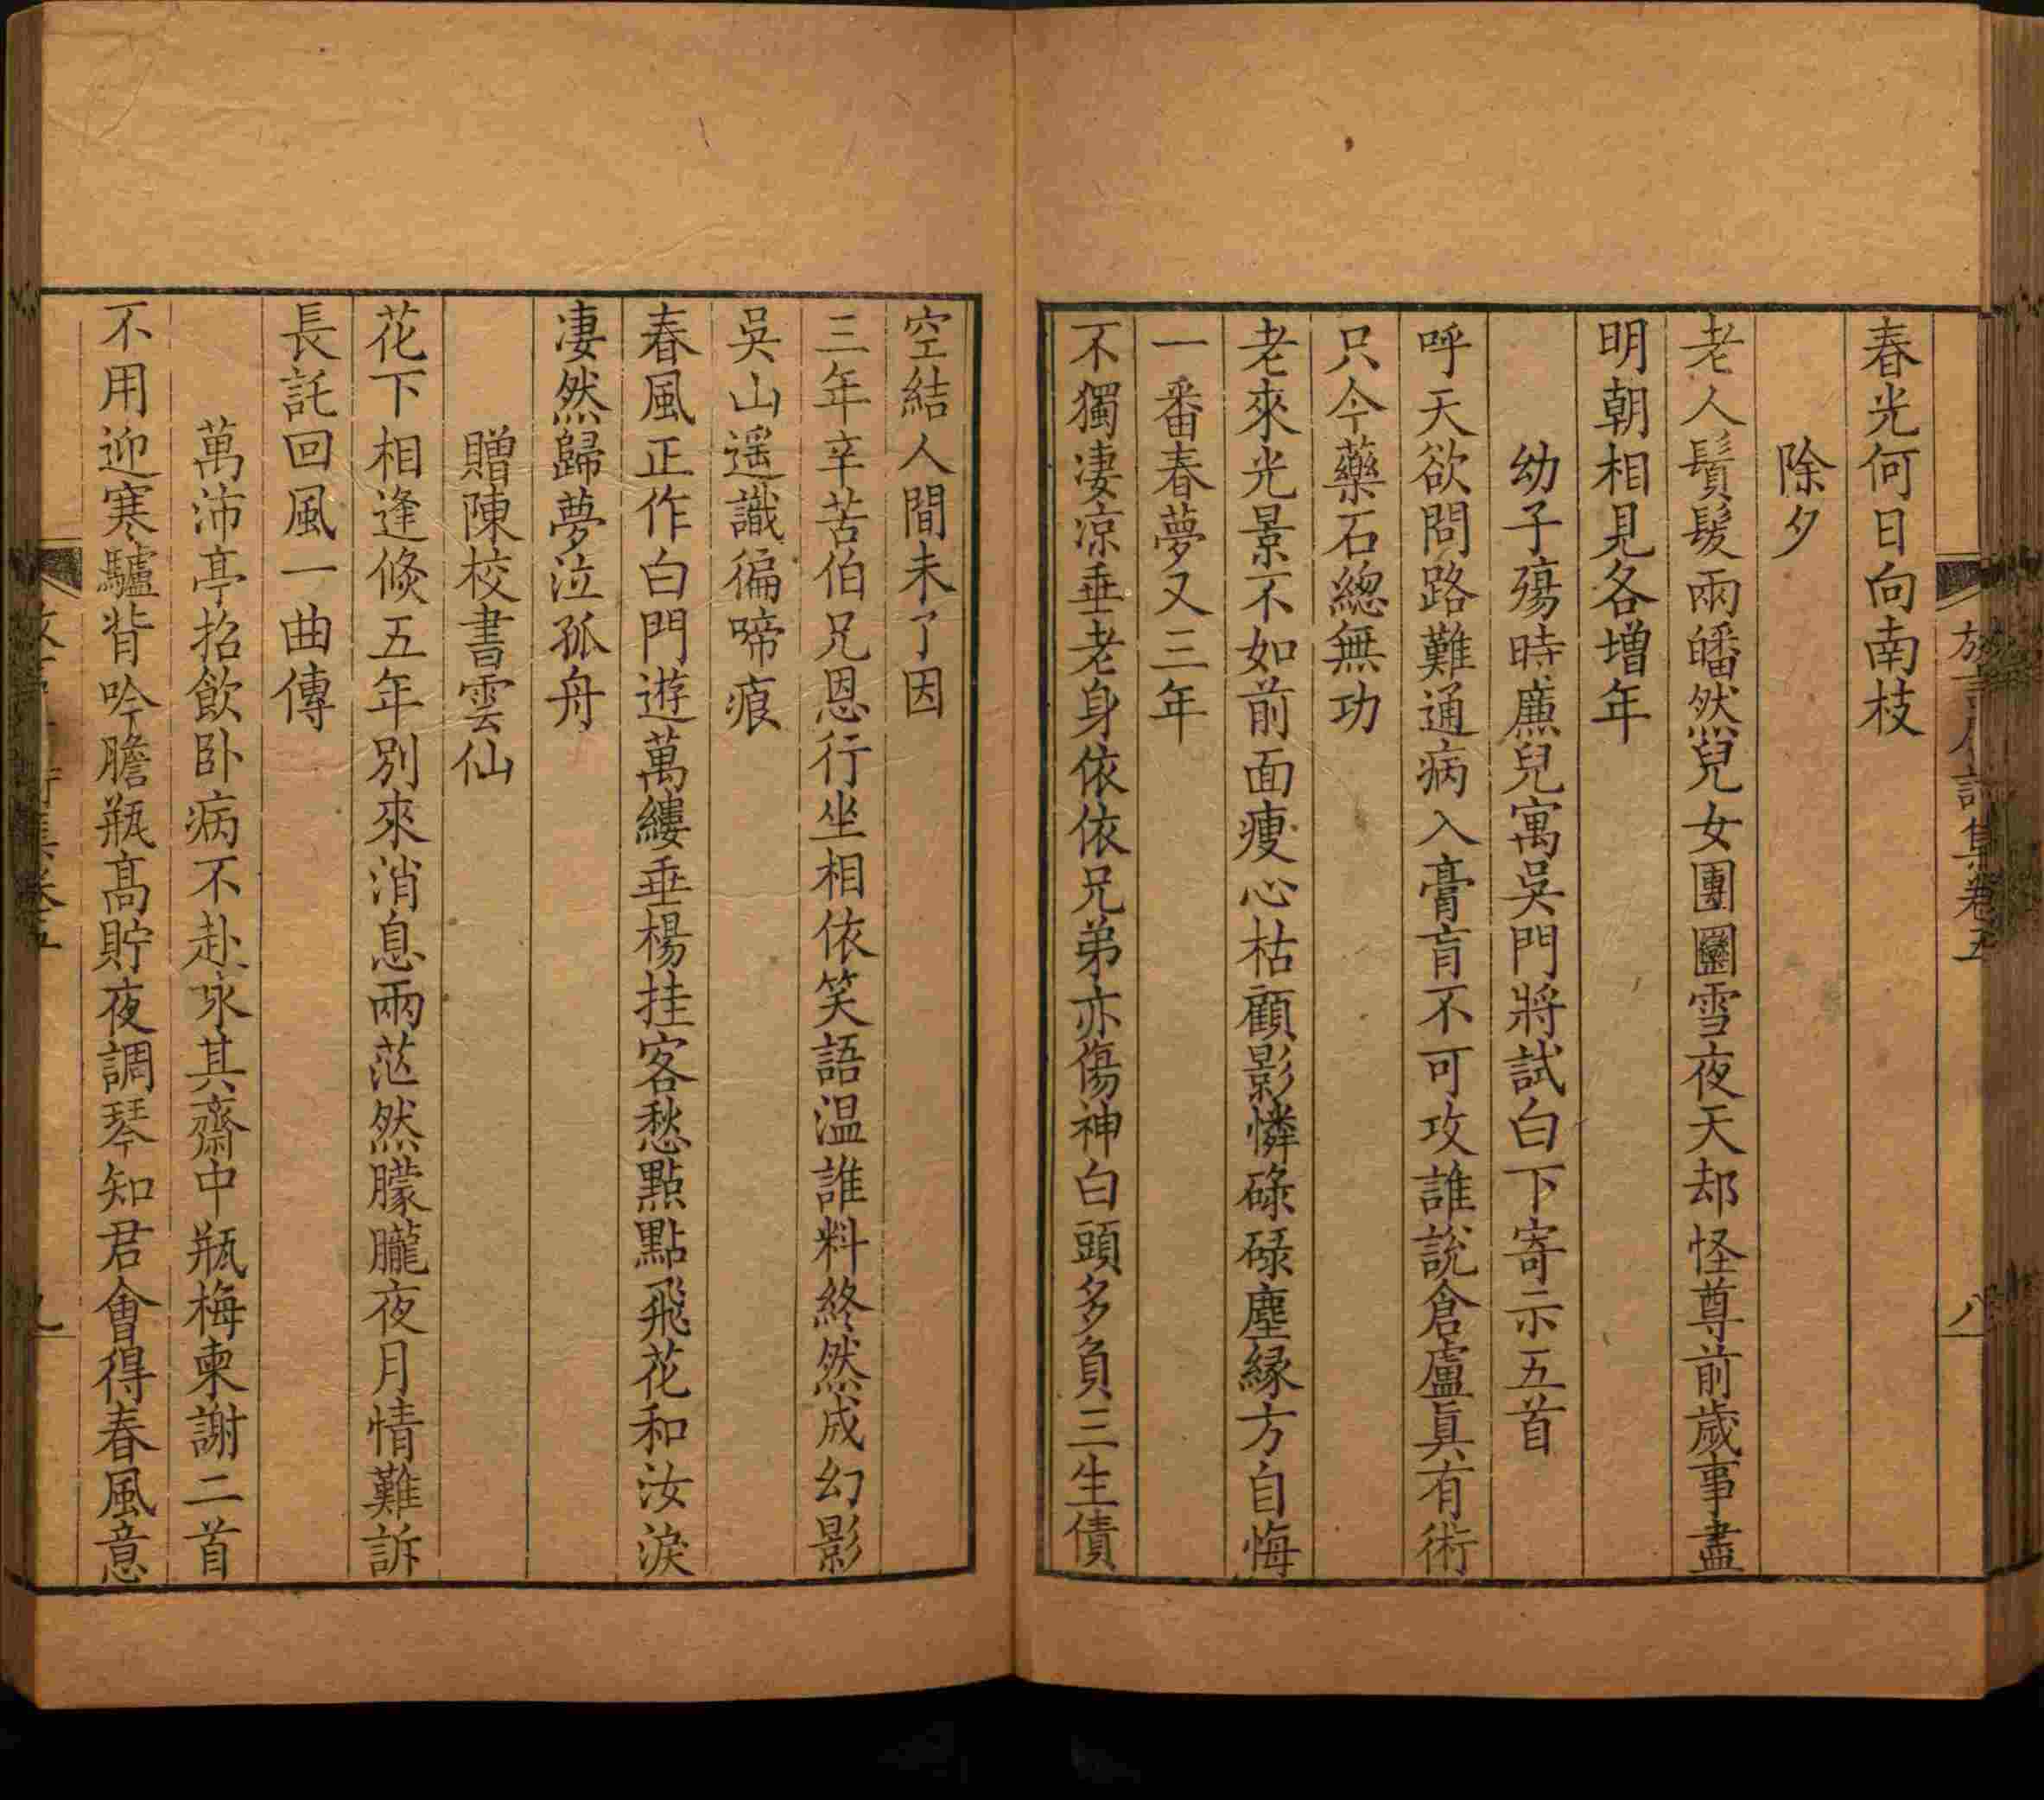 春光何日向南枝
除夕
老人鬢髮兩皤然兒女團圞雪夜天却怪尊前歲事盡
明朝相見各增年
幼子殤時廌兒寓吳門將試白下寄示五首
呼天欲問路難通病入膏肓不可攻誰說倉盧眞有術
只今藥石總無功
老來光景不如前面瘦心枯顧影憐碌碌塵緣方自悔
一番春夢又三年
不獨凄凉垂老身依依兄弟亦傷神白頭多負三生債
空結人間未了因
三年辛苦伯兄恩行坐相依笑語温誰料終然成幻影
吳山遥識徧啼痕
春風正作白門遊萬縷垂楊挂客愁點點飛花和汝淚
凄然歸夢泣孤舟
贈陳校書雲仙
花下相逢倐五年別來消息兩茫然朦朧夜月情難訴
長託回風一曲傳
萬沛亭招飲卧病不赴承其齋中瓶梅柬謝二首
不用迎寒驢背吟膽瓶高貯夜調琴知君會得春風意